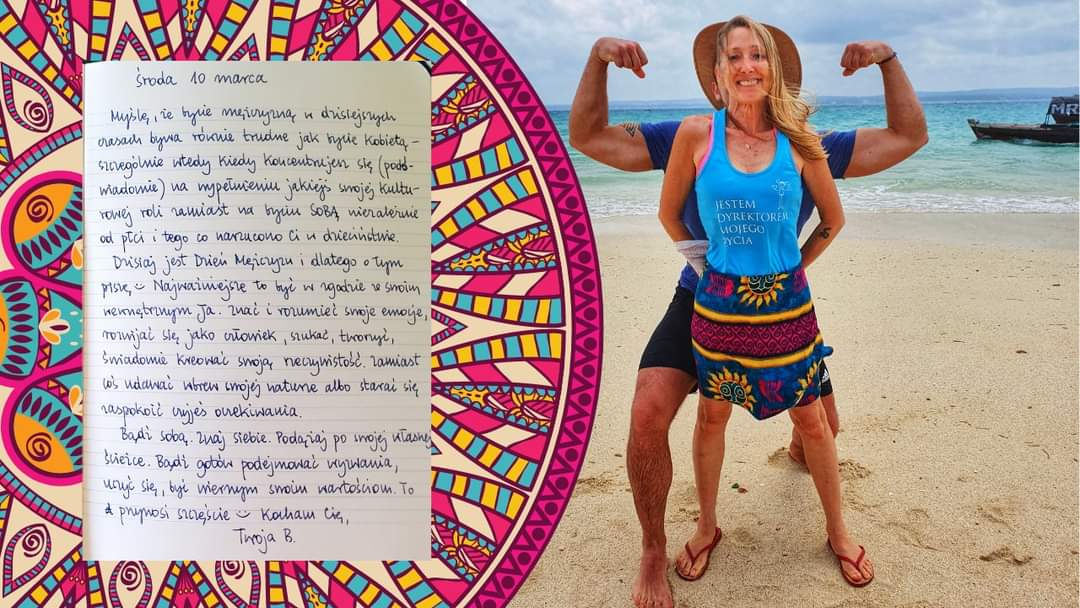 środa 10 marca
Myślę, że bycie mężczyzną w dzisiejszych
czasach bywa równie trudne jak bycie kobietą –
szczególnie wtedy kiedy koncentrujesz się (pod-
świadomie) na wypełnieniu jakiejś swojej kultu-
rowej roli zamiast na byciu SOBĄ niezależnie
od płci i tego co narzucono Ci w dzieciństwie.
Dzisiaj jest Dzień Mężczyzn i dlatego o tym
piszę. Najważniejsze to być w zgodzie ze swoim
wewnętrznym Ja. Znać i rozumieć swoje emocje,
rozwijać się jako człowiek, szukać, tworzyć,
świadomie kreować swoją rzeczywistość zamiast
coś udawać wbrew swojej naturze albo starać się
zaspokoić czyjeś oczekiwania.
Bądź sobą. Znaj siebie. Podążaj po swojej własnej
ścieżce. Bądź gotów podejmować wyzwania,
uczyć się, być wiernym swoim wartościom. To
przynosi szczęście Kocham Cię,
Twoja B.
JESTEM
DYREKTOREM
MOJEGO
ŻYCIA
MR